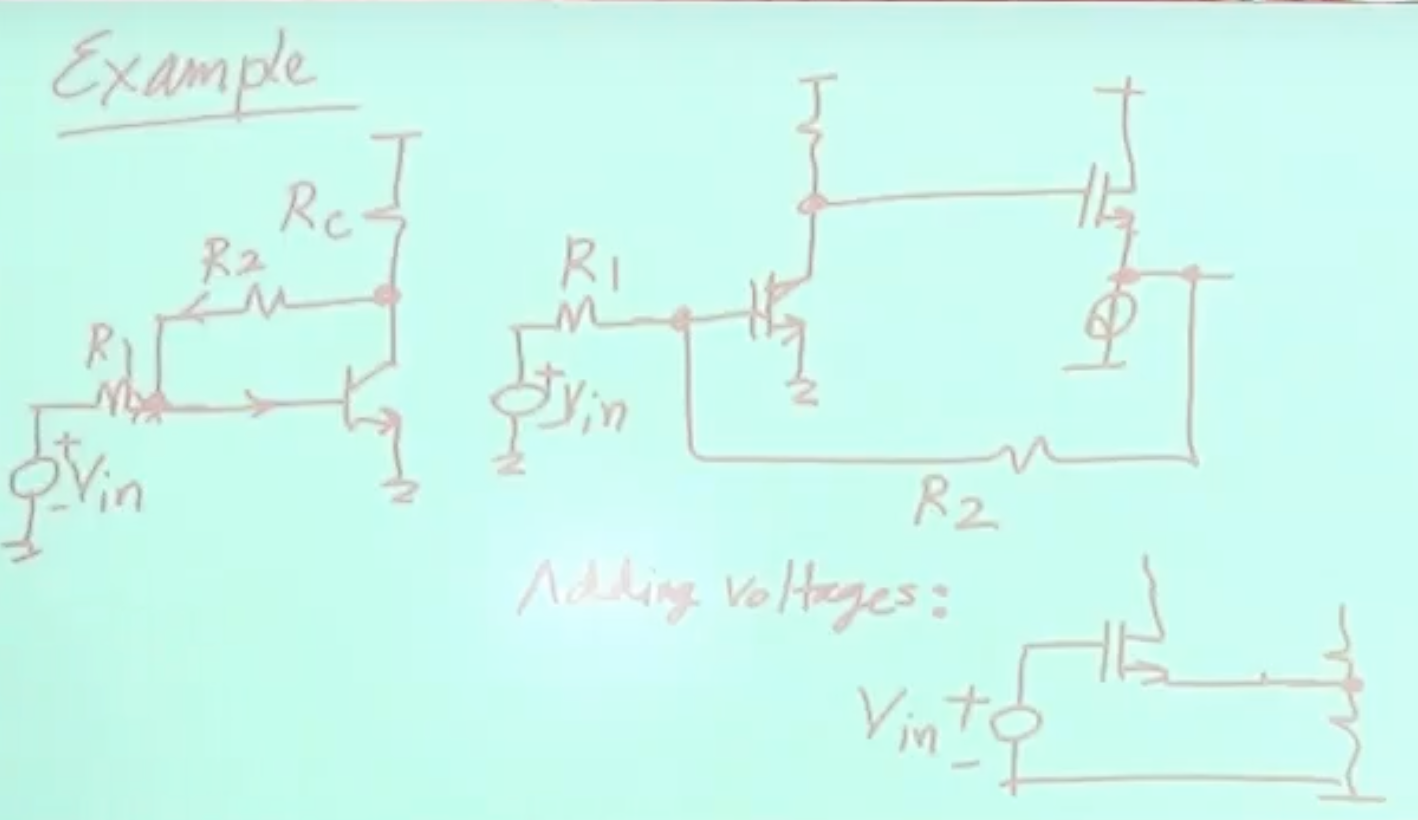 Example
Rc
R2
R1
+
Vin
-
R1
+
Vin
R2
Adding voltages:
Vin
+
-